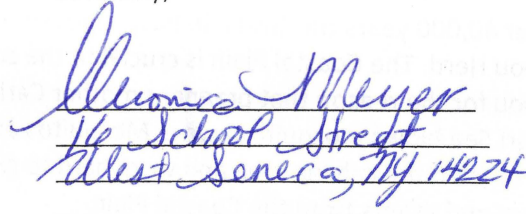 Veronica Meyer
16 School Street
West Seneca, NY 14224